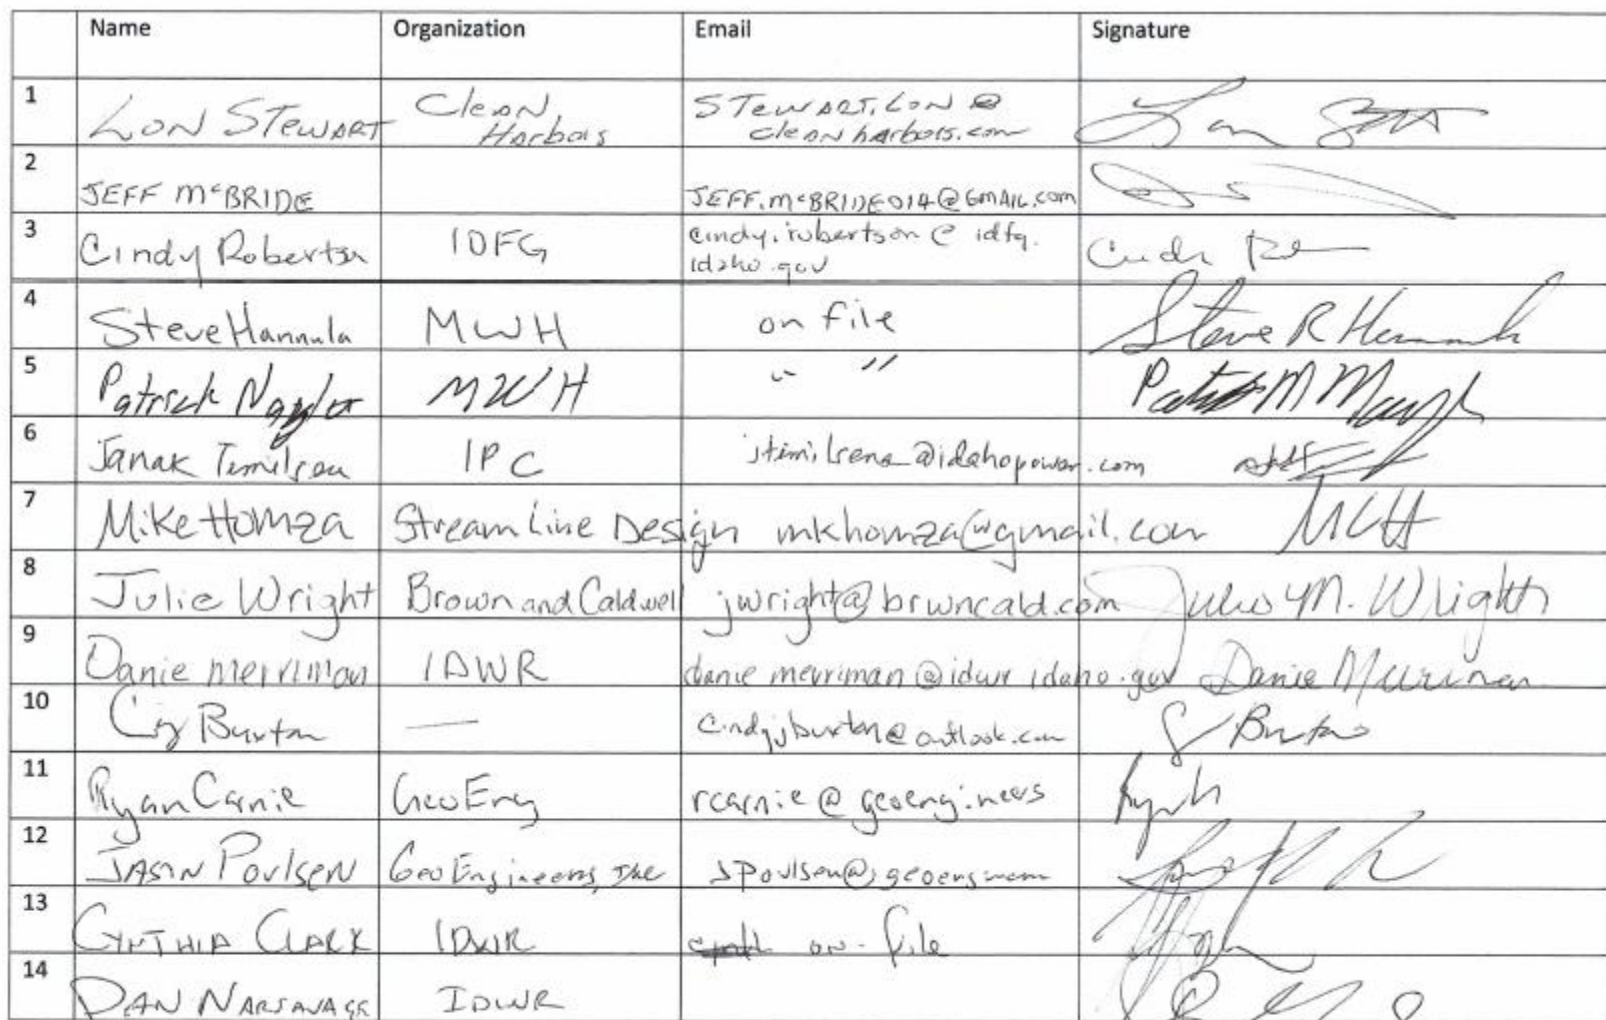 Name Organization Email Signature
1 LON STEWART Clean Harbors STEWART.LON@ cleanharbors.com
2 JEFF McBRIDE JEFF.McBRIDE014@GMAIL.com
3 Cindy Robertson IDFG cindy.robertson@idfg. idaho.gov
4 Steve Hannula MWH on file Steve R Hannula
5 Patrick Naylor MWH " "
6 Janak Timilsena IPC jtimilsena@idahopower.com
7 Mike Homza StreamLine Design mkhomza@gmail.com MCH
8 Julie Wright Brown and Caldwell jwright@brwncald.com Julie M. Wright
9 Danie Merriman IDWR danie.merriman@idwr.idaho.gov Danie Merriman
10 Burton — cindyjburton@outlook.com Burton
11 Ryan Carnie GeoEng rcarnie@geoengineers
12 JASON POULSEN GeoEngineers, Inc JPoulsen@
13 CYNTHIA CLARK IDWR on file
14 DAN NARSAVAGE IDWR